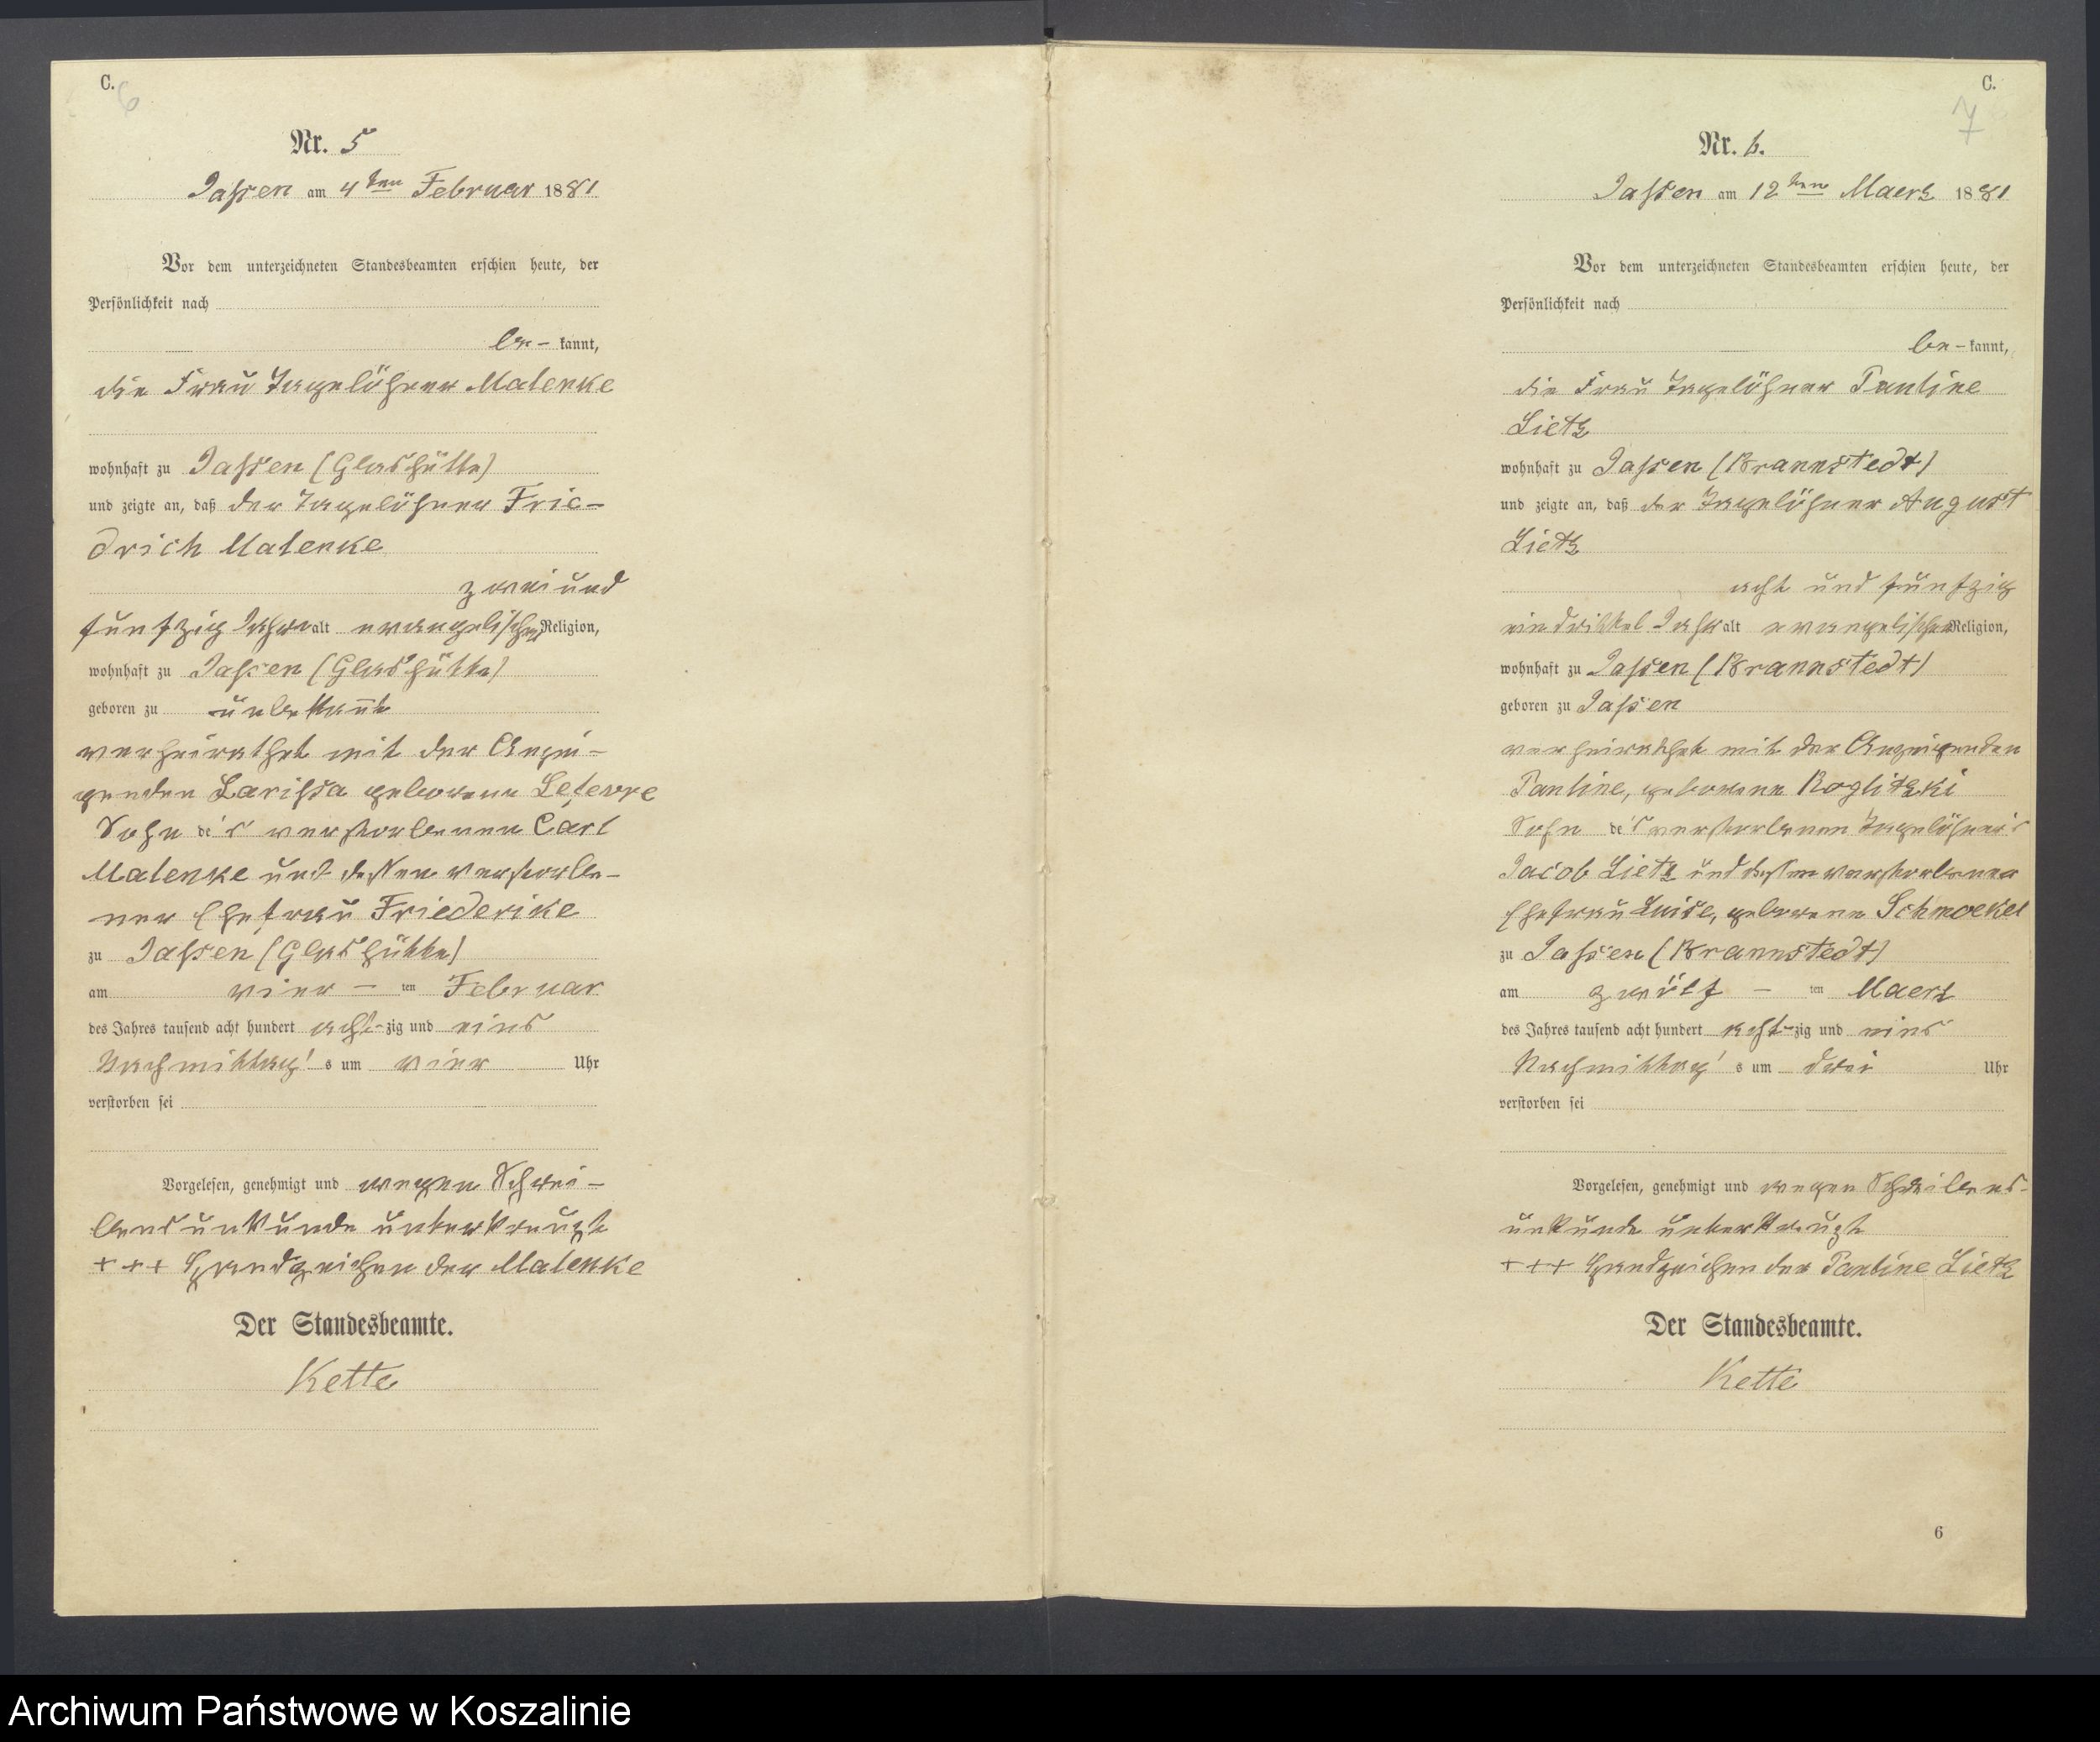 C.
6
Nr. 5
Jassen am 4ten Februar 1881
Vor dem unterzeichneten Standesbeamten erschien heute, der
Persönlichkeit nach
be- kannt,
die Frau Tagelöhner Malenke
wohnhaft zu Jassen (Glashütte)
und zeigte an, daß der Tagelöhner Frie-
drich Malenke
zweiund
fünfzig Jahre alt evangelischer Religion,
wohnhaft zu Jassen (Glashütte)
geboren zu unbekannt
verheirathet mit der Anzei-
genden Larissa geborene Lefevre
Sohn de's verstorbenen Carl
Malenke und dessen verstorbe-
ner Ehefrau Friederike
zu Jassen (Glashütte)
am vier - ten Februar
des Jahres tausend acht hundert acht-zig und eins
Nachmittag's um vier Uhr
verstorben sei
Vorgelesen, genehmigt und wegen Schrei-
bensunkunde unterkreuzt
+++ Handzeichen der Malenke
Der Standesbeamte.
Kette
C.
7
Nr. 6.
Jassen am 12ten Maerz 1881
Vor dem unterzeichneten Standesbeamten erschien heute, der
Persönlichkeit nach
be- kannt,
die Frau Tagelöhner Pauline
Lietz
wohnhaft zu Jassen (Brannstedt)
und zeigte an, daß der Tagelöhner August
Lietz
acht und fünfzig
ein drittel Jahr alt evangelischer Religion,
wohnhaft zu Jassen (Brannstedt)
geboren zu Jassen
verheirathet mit der Anzeigenden
Pauline, geborene Roglitzki
Sohn de's verstorbenen Tagelöhner's
Jacob Lietz und dessen verstorbener
Ehefrau Luise, geborene Schmoekel
zu Jassen (Brannstedt)
am zwölf - ten Maerz
des Jahres tausend acht hundert acht-zig und eins
Nachmittag's um drei Uhr
verstorben sei
Vorgelesen, genehmigt und wegen Schreibens-
unkunde unterkreuzt
+++ Handzeichen der Pauline Lietz
Der Standesbeamte.
Kette
6
Archiwum Państwowe w Koszalinie